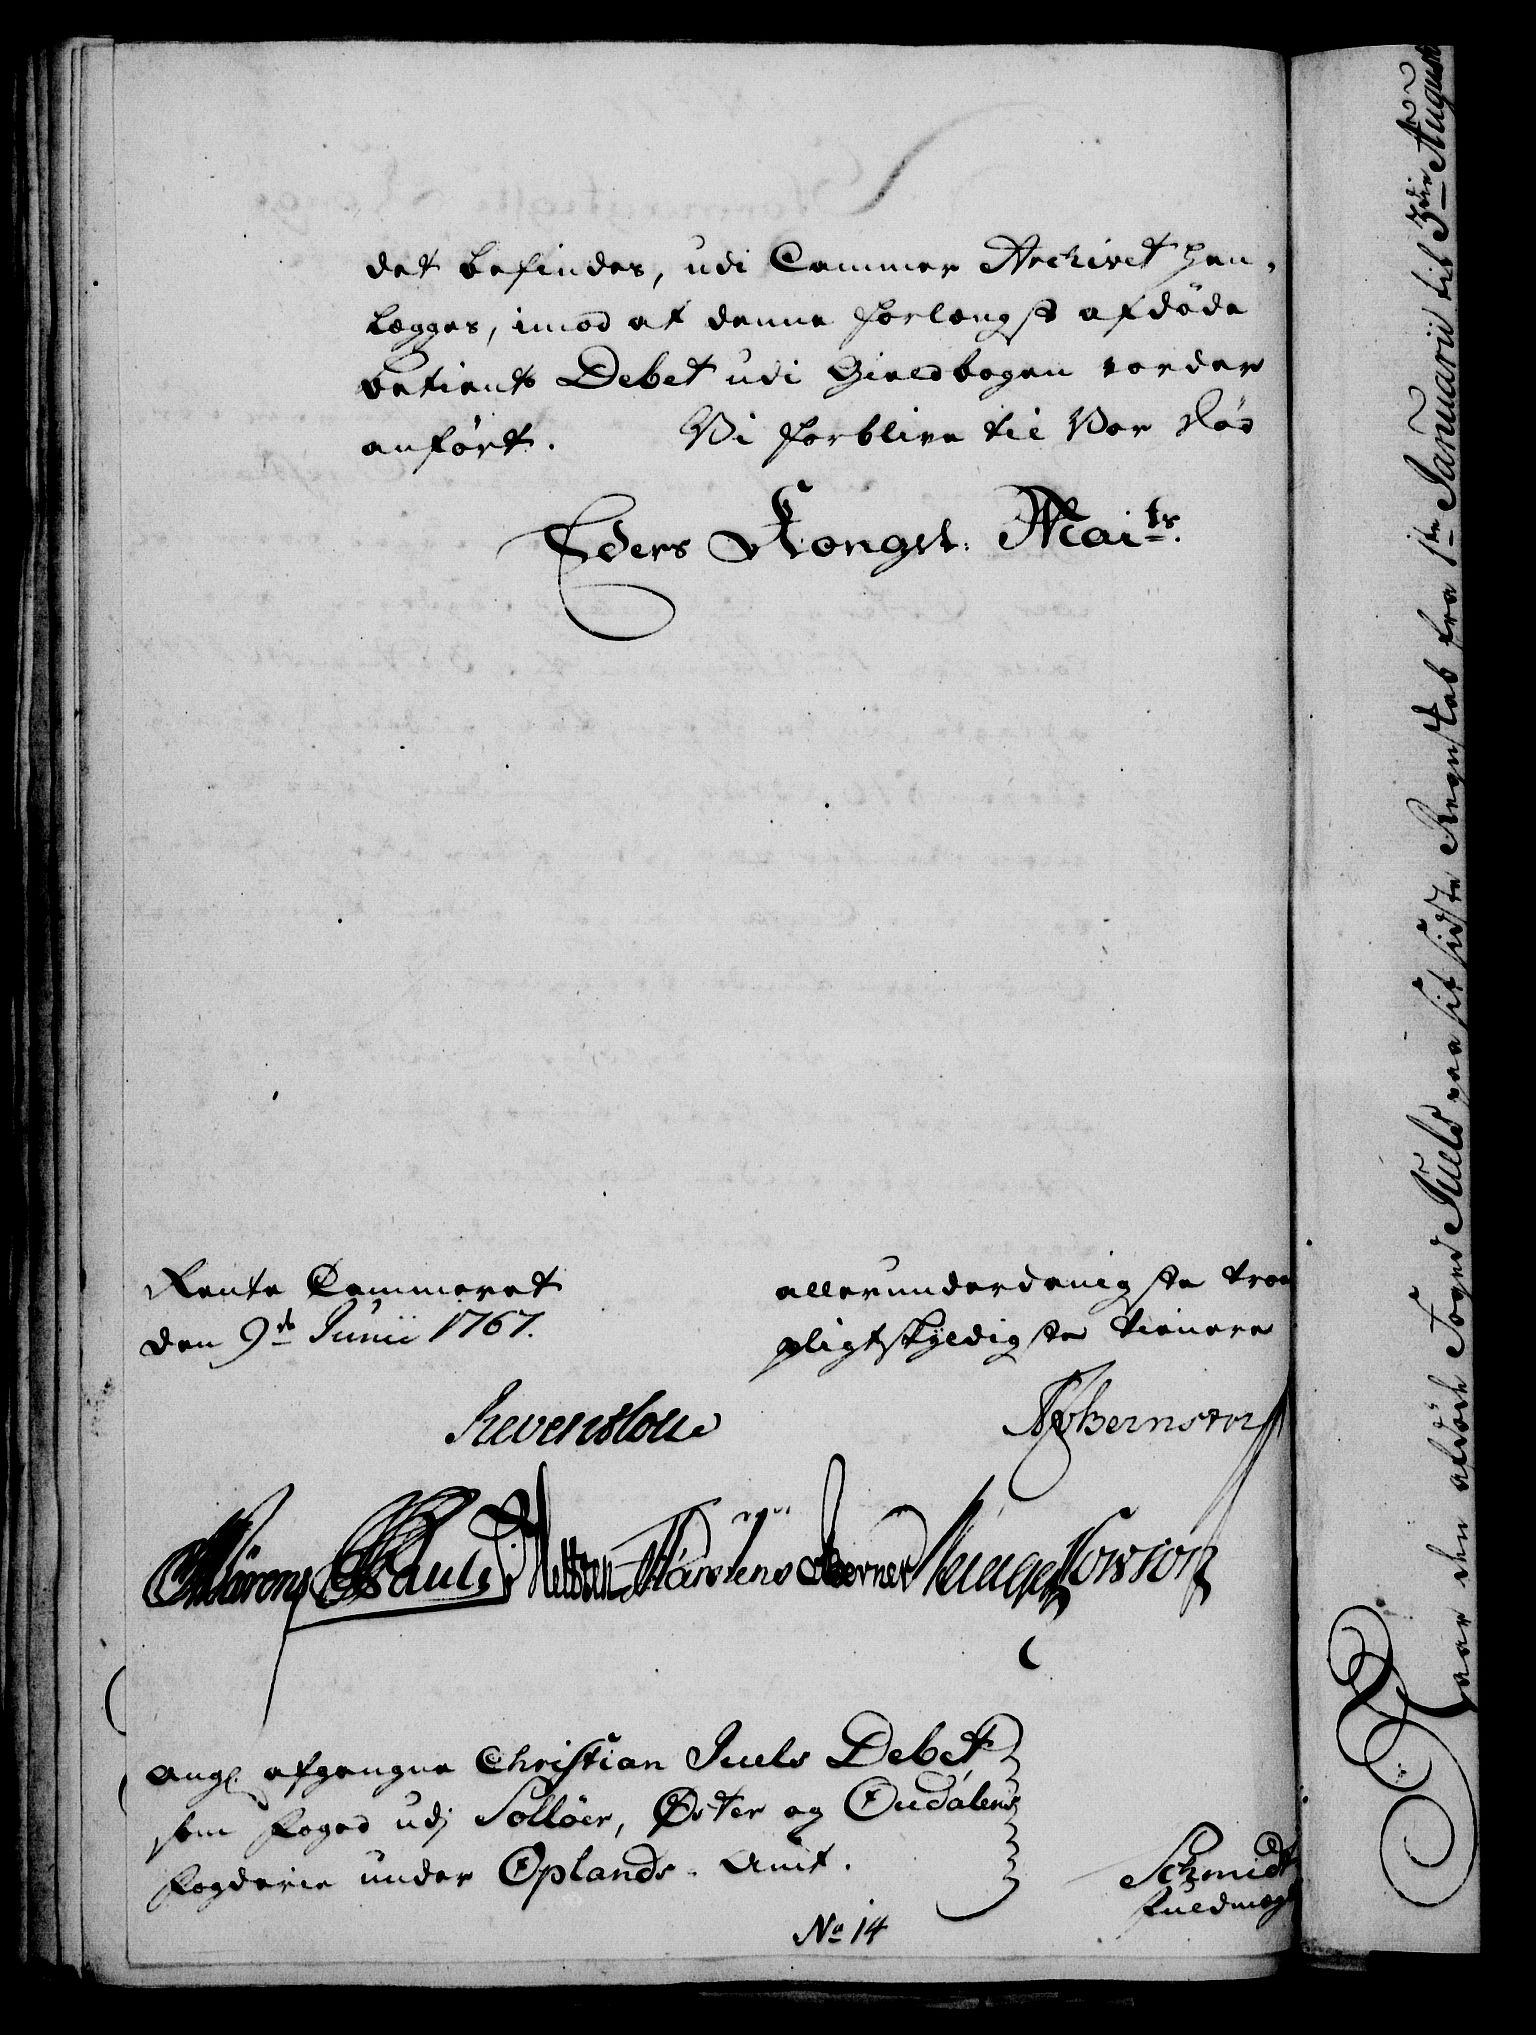 det befindes, udi Cammer Archivet hen-
lægges, imod at denne forlængst afdöde
betients Debet udi Gieldbogen vorder
anfört. Vi forblive til Vor Död
Eders Kongel: Mai:ts
Rente Cammeret
den 9de Junii 1767.
allerunderdanigste troe
pligtskyldigste tienere
Reventlow
Bernstorff
Pauli
Karstens Berner
ang: afgangne Christian Juels Debet
som Foged udj Sollöer, Öster og Oudalens
Fogderie under Oplands-Amt.
Schmidt
Fuldmægt
No 14
den afdöde Foged Juels paa sit sidste Regnskab fra 1te Januarii til 3die August